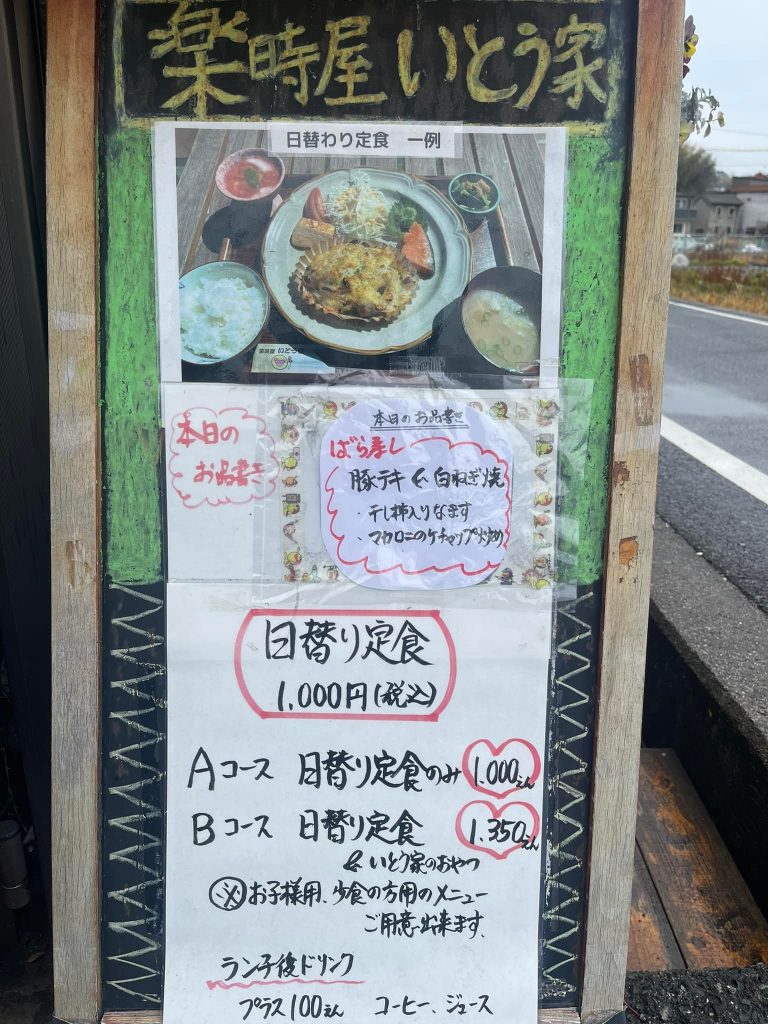 楽時屋 いとう家
日替わり定食 一例
楽時屋 いとう家
本日の
お品書き
本日のお品書き
ばら寿し
豚テキ & 白ねぎ焼
・干し柿入りなます
・マカロニのケチャップ炒め
日替り定食
1,000円(税込)
Aコース 日替り定食のみ 1.000えん
Bコース 日替り定食 1.350えん
& いとう家のおやつ
※お子様用、少食の方用のメニュー
ご用意出来ます。
ランチ後ドリンク
プラス100えん コーヒー、ジュース